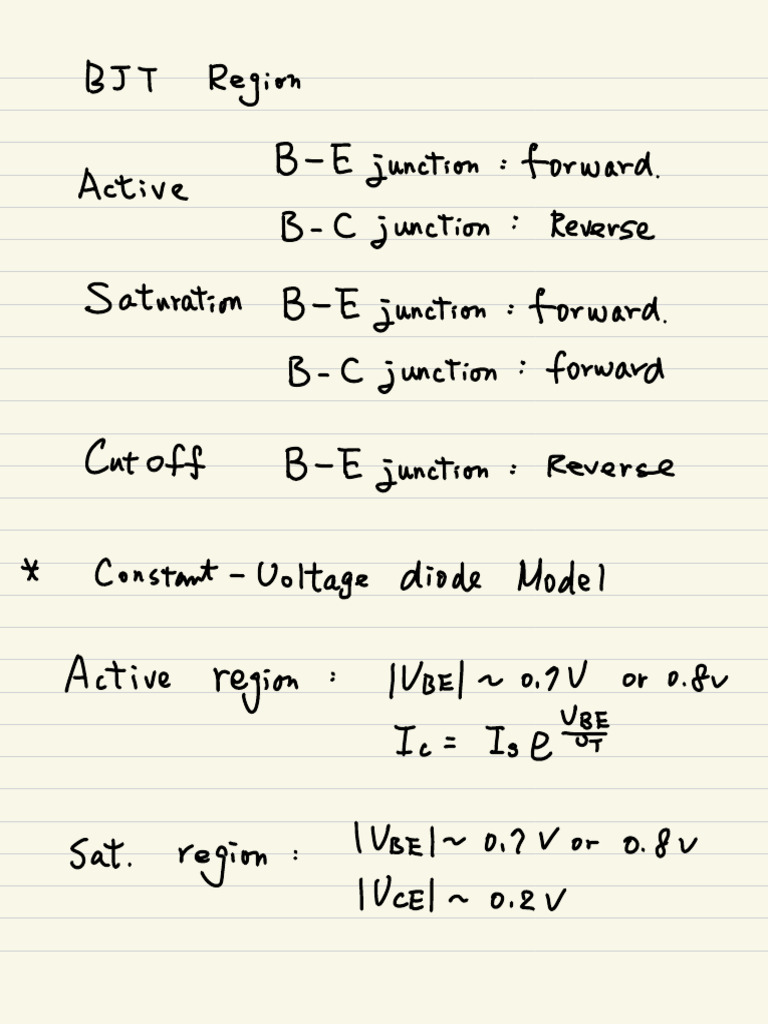 BJT Region
B-E junction : forward.
Active
B-C junction : Reverse
Saturation B-E junction : forward.
B-C junction : forward
Cutoff B-E junction : Reverse
* Constant-Voltage diode Model
Active region : |VBE| ~ 0.7V or 0.8V
Ic = Is e^(VBE/VT)
Sat. region : |VBE| ~ 0.7V or 0.8V
|VCE| ~ 0.2V